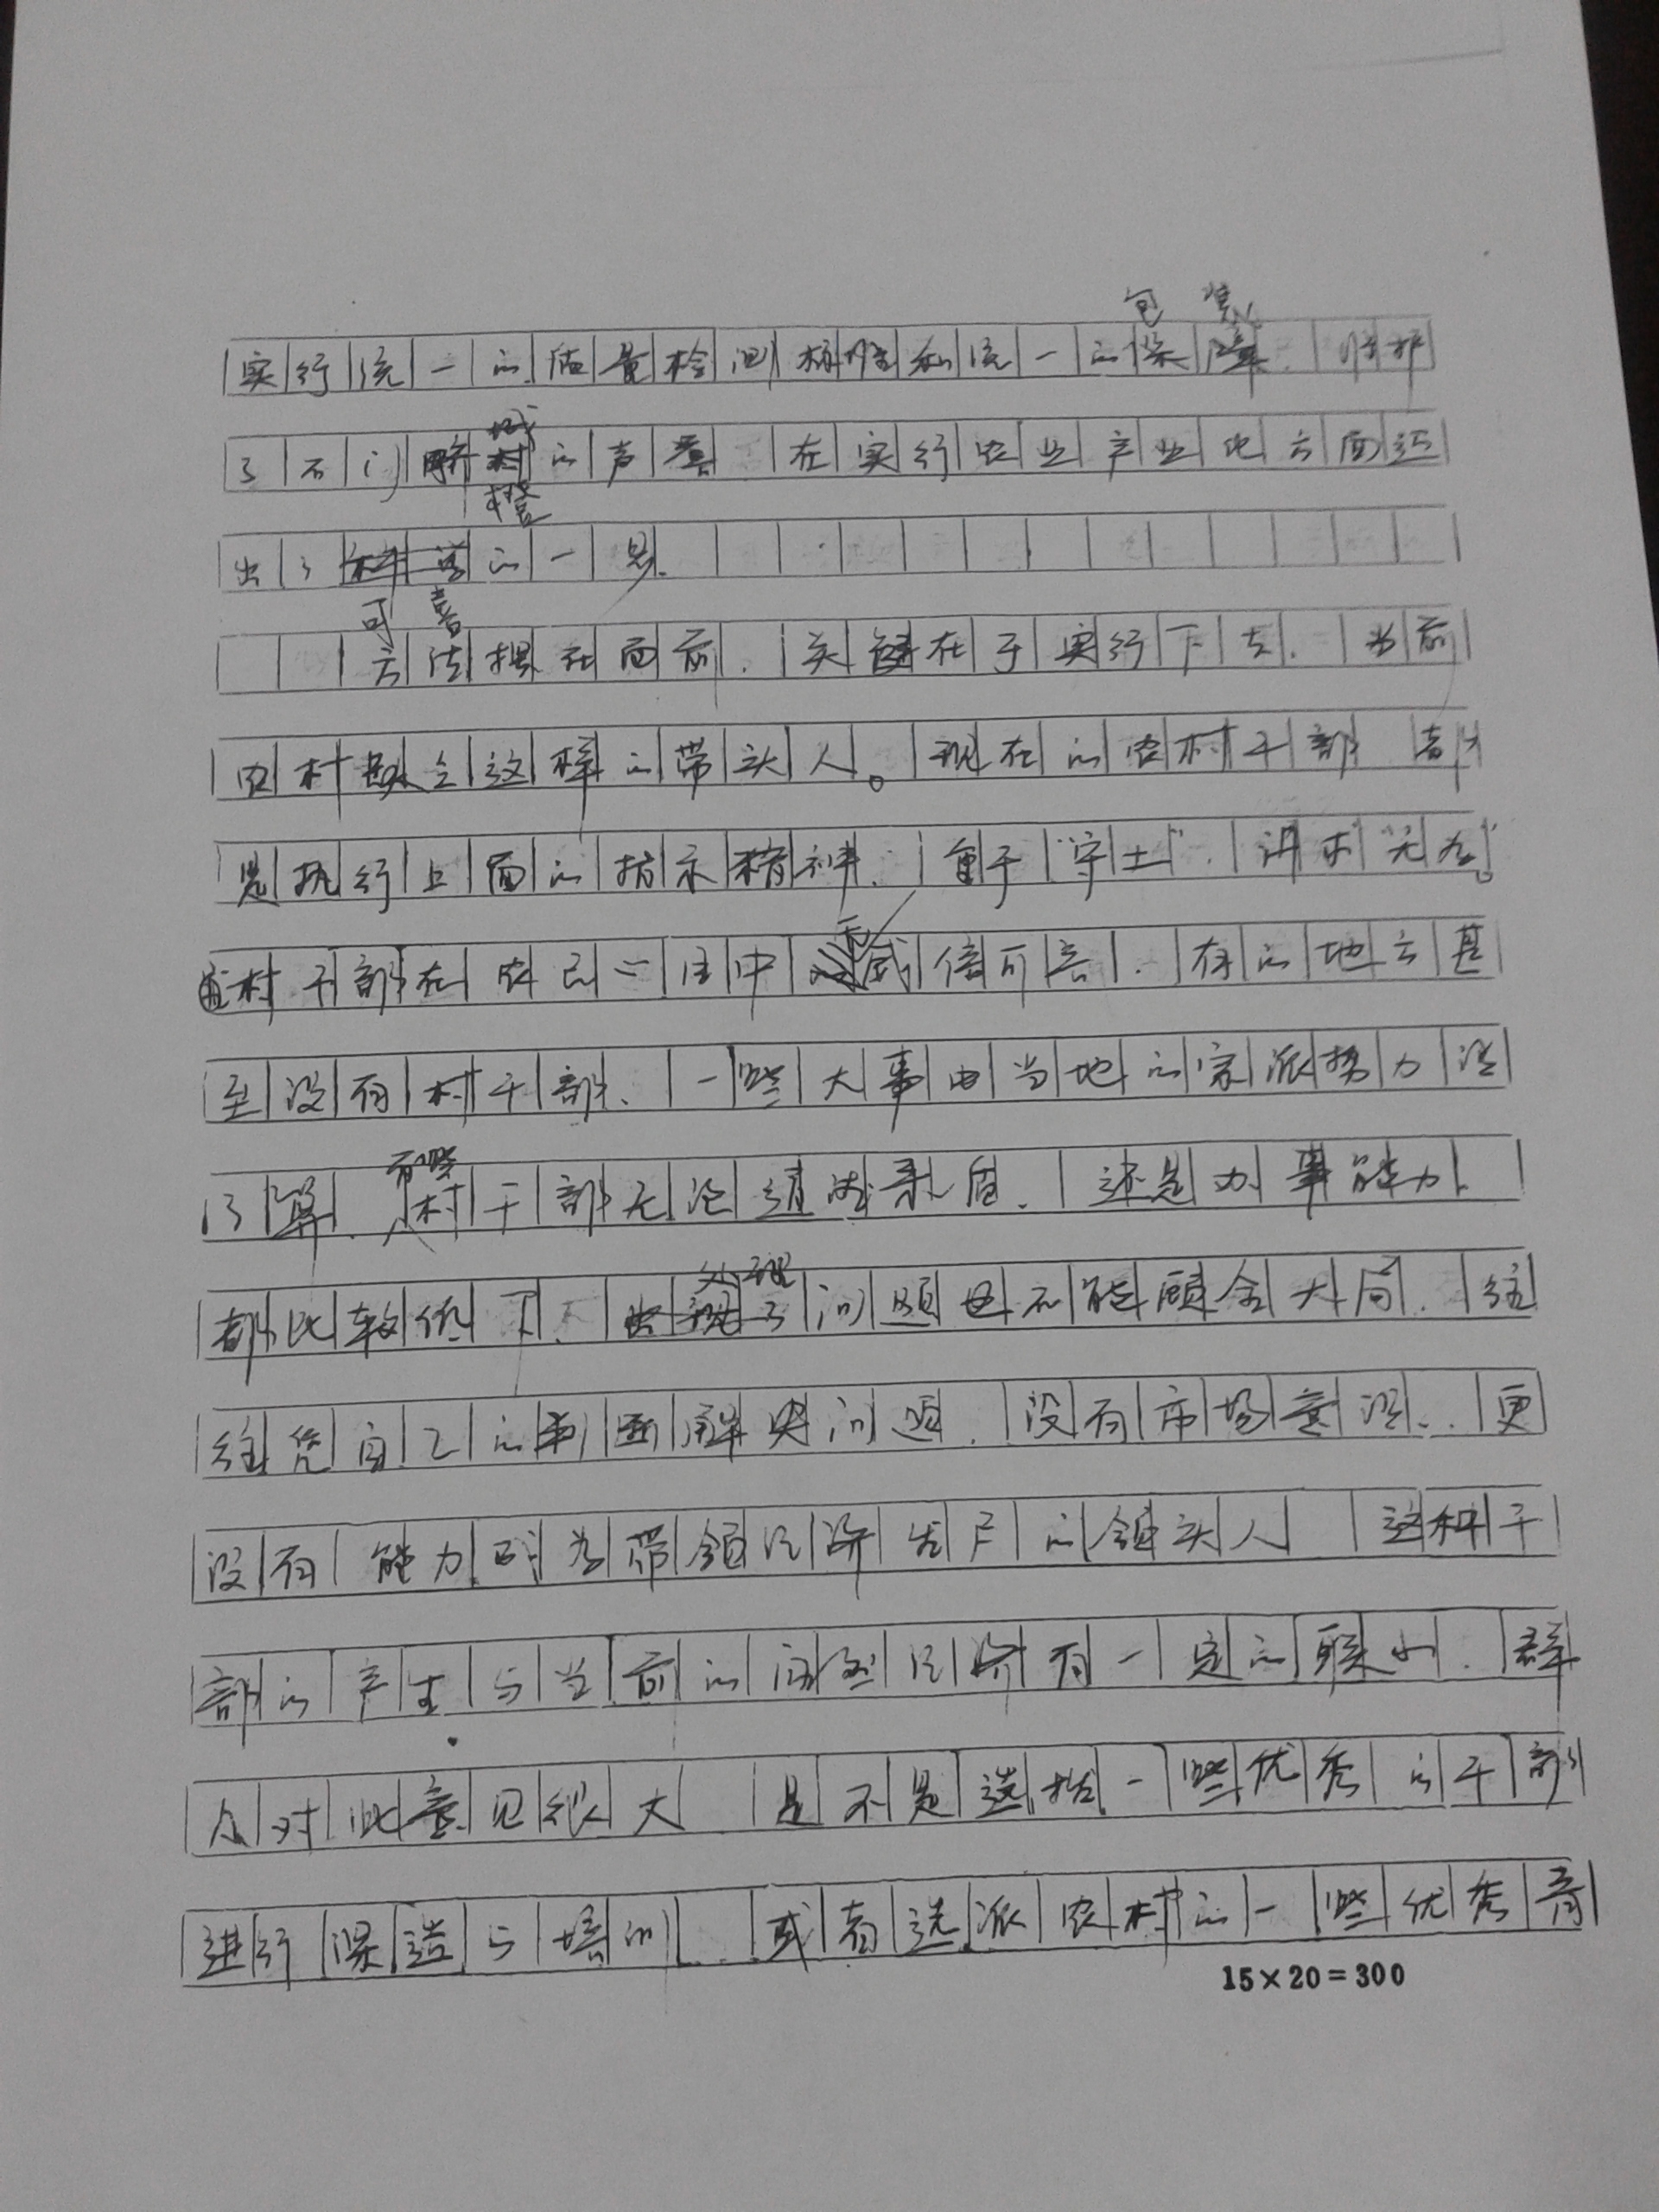 包装
实行统一的质量检测标准和统一的保障.维护
了石门脐橙的声誉.在实行农业产业化方面迈
出了可喜的一步.
方法摆在面前.关键在于实行下去.当前
农村缺乏这样的带头人。现在的农村干部都
是执行上面的指示精神.重于"守土".讲求"无为"。
村干部在农民心目中无威信可言.有的地方甚
至没有村干部.一些大事由当地的宗派势力说
了算.有些村干部无论道德素质.还是办事能力.
都比较低下.处理问题也不能顾全大局.往
往凭自己的判断解决问题.没有市场意识.更
没有能力成为带领经济发展的领头人 这种干
部的产生与当前的 经济有一定的联系.群
众对此意见很大.是不是选拔一些优秀的干部
进行深造与培训.或者选派农村的一些优秀青
15×20=300